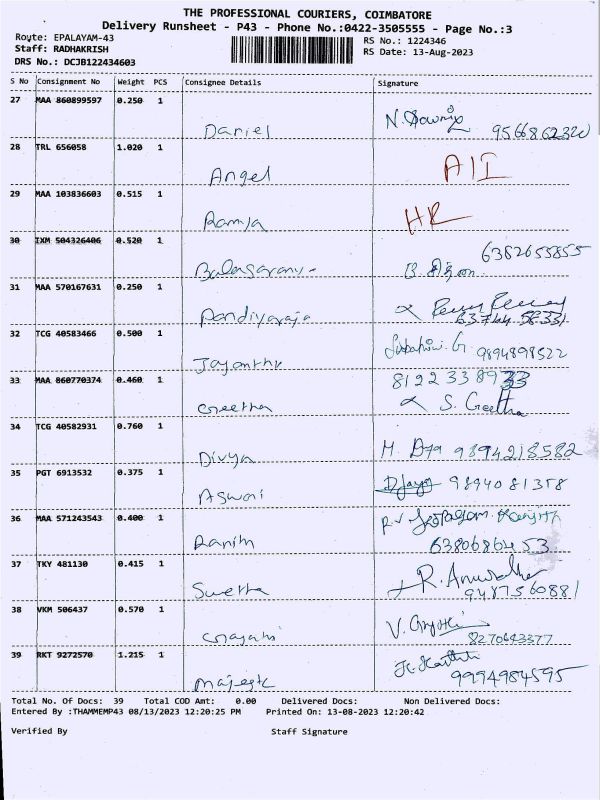 THE PROFESSIONAL COURIERS, COIMBATORE
Delivery Runsheet - P43 - Phone No.:0422-3505555 - Page No.:3
Route: EPALAYAM-43
RS No.: 1224346
Staff: RADHAKRISH
RS Date: 13-Aug-2023
DRS No.: DCJB122434603
S No Consignment No Weight PCS Consignee Details Signature
27 MAA 860899597 0.250 1
Daniel 9566862320
28 TRL 656058 1.020 1
Angel
29 MAA 103836603 0.515 1
Ramya HR
30 IXM 504326406 0.520 1
6382655855
31 MAA 570167631 0.250 1
Pandiyaraja
32 TCG 40583466 0.500 1
Jayanthi 9894898522
33 MAA 860770374 0.460 1
8122338933
Geetha S. Geetha
34 TCG 40582931 0.760 1
Divya 9894218582
35 PGT 6913532 0.375 1
Aswani 9894081358
36 MAA 571243543 0.400 1
Ranith 6380686453
37 TKY 481130 0.415 1
Swetha R. Anuradha
9487560881
38 VKM 506437 0.570 1
Gayatri
8270643377
39 RKT 9272570 1.215 1
9994984595
Total No. Of Docs: 39 Total COD Amt: 0.00 Delivered Docs: Non Delivered Docs:
Entered By :THAMMEMP43 08/13/2023 12:20:25 PM Printed On: 13-08-2023 12:20:42
Verified By Staff Signature